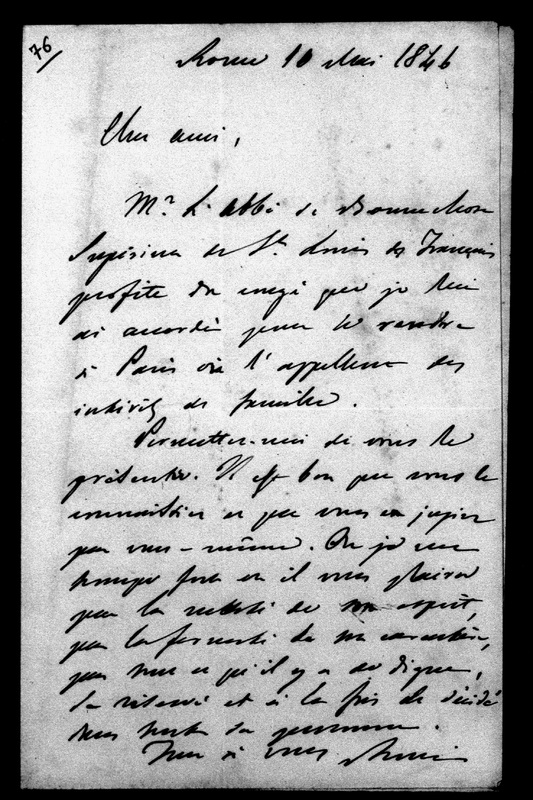 76
Rome 10 Mai 1846
Cher ami,
Mr. L'abbé de Bonnechose
Supérieur de St. Louis des Français
profite du congé que je lui
ai accordé pour se rendre
à Paris où l'appellent des
intérêts de famille.
Permettez-moi de vous le
présenter. Il est bon que vous le
connaissiez et que vous en jugiez
par vous-même. Ou je me
trompe fort ou il vous plaira
par la netteté de son esprit,
par la fermeté de son caractère,
par tout ce qu'il y a de digne,
de réservé et à la fois de décidé
dans toute sa personne.
Tout à vous